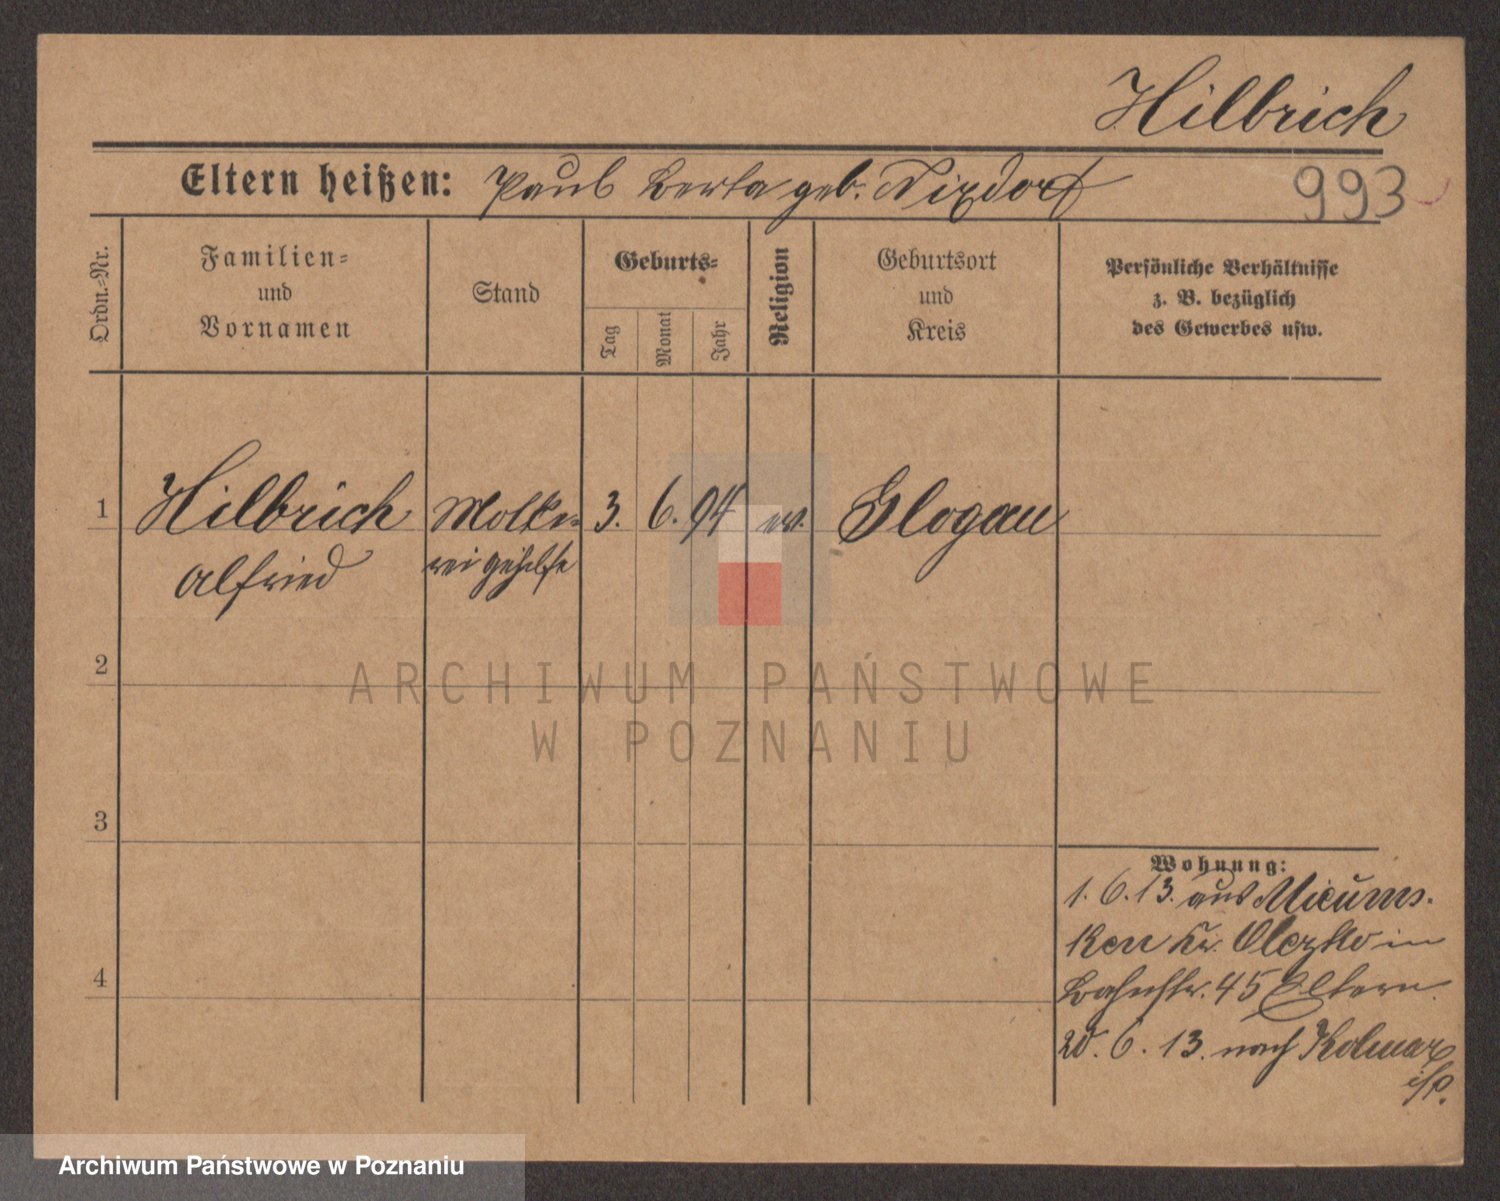 Hilbrich
Eltern heißen: Paul Berta geb. Nixdorf
993
Ordn.-Nr.
Familien-
und
Vornamen
Stand
Geburts-
Tag
Monat
Jahr
Religion
Geburtsort
und
Kreis
Persönliche Verhältnisse
z. B. bezüglich
des Gewerbes usw.
1 Hilbrich Molke- 3. 6. 94 ev. Glogau
Alfried reigehilfe
2
ARCHIWUM PAŃSTWOWE
W POZNANIU
3
Wohnung:
1. 6. 13. aus
ken Kr. Olezko in
4 Bahnstr. 45 Eltern.
20. 6. 13. nach Kolmar
i/P.
Archiwum Państwowe w Poznaniu